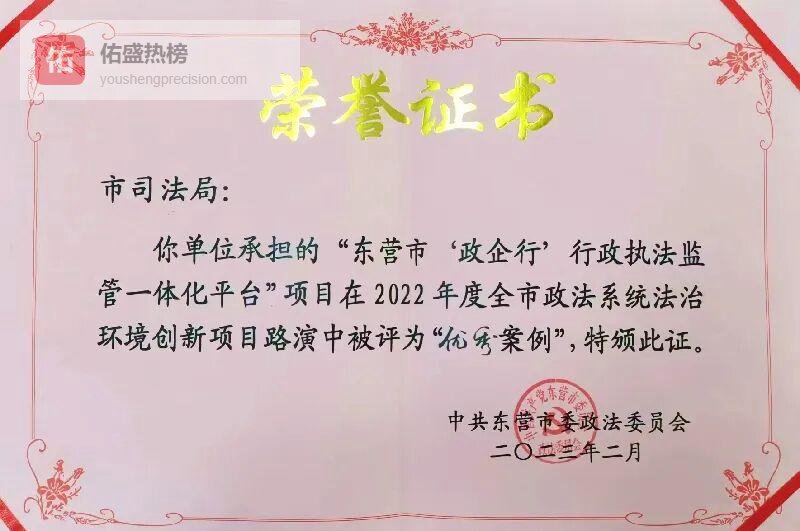 佑
佑盛热榜
youshengprecision.com
荣誉证书
市司法局：
你单位承担的“东营市‘政企行’行政执法监
管一体化平台”项目在2022年度全市政法系统法治
环境创新项目路演中被评为“优秀案例”，特颁此证。
中共东营市委政法委员会
二〇二三年二月